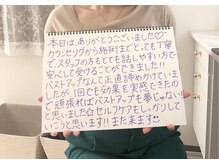 本日はありがとうございました♡
カウンセリングから施術まで、とっても丁寧
でスタッフの方もとても話しやすい方で
安心して受けることができました!!
バストアップなんて正直諦めかけていま
したが1回でも効果を実感できたの
で頑張ればバストアップも夢じゃない
と思いました☆セルフケアもしっかりして
いこうと思います!!また来ます♡